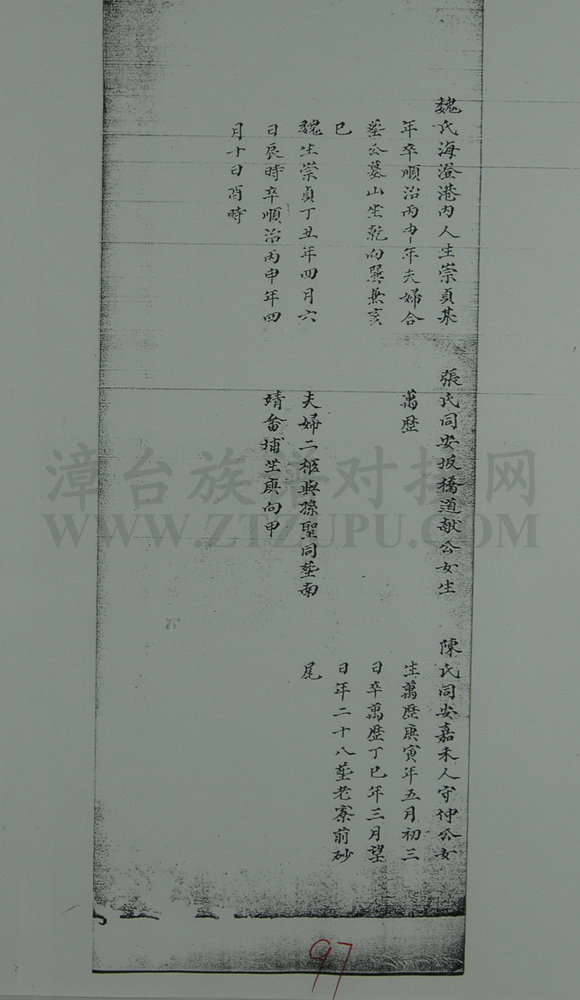 魏氏海澄港內人生崇貞某
年卒順治丙申年夫婦合
塟公墓山坐乾向巽兼亥
巳
魏生崇貞丁丑年四月六
日辰時卒順治丙申年四
月十日酉時
張氏同安坂橋道献公女生
萬歷
夫婦二柩與孫聖同塟南
靖畬埔坐庚向甲
陳氏同安嘉禾人守仲公女
生萬歷庚寅年五月初三
日卒萬歷丁巳年三月望
日年二十八塟老寮前砂
尾
漳台族谱对接网
WWW.ZTZUPU.COM
97